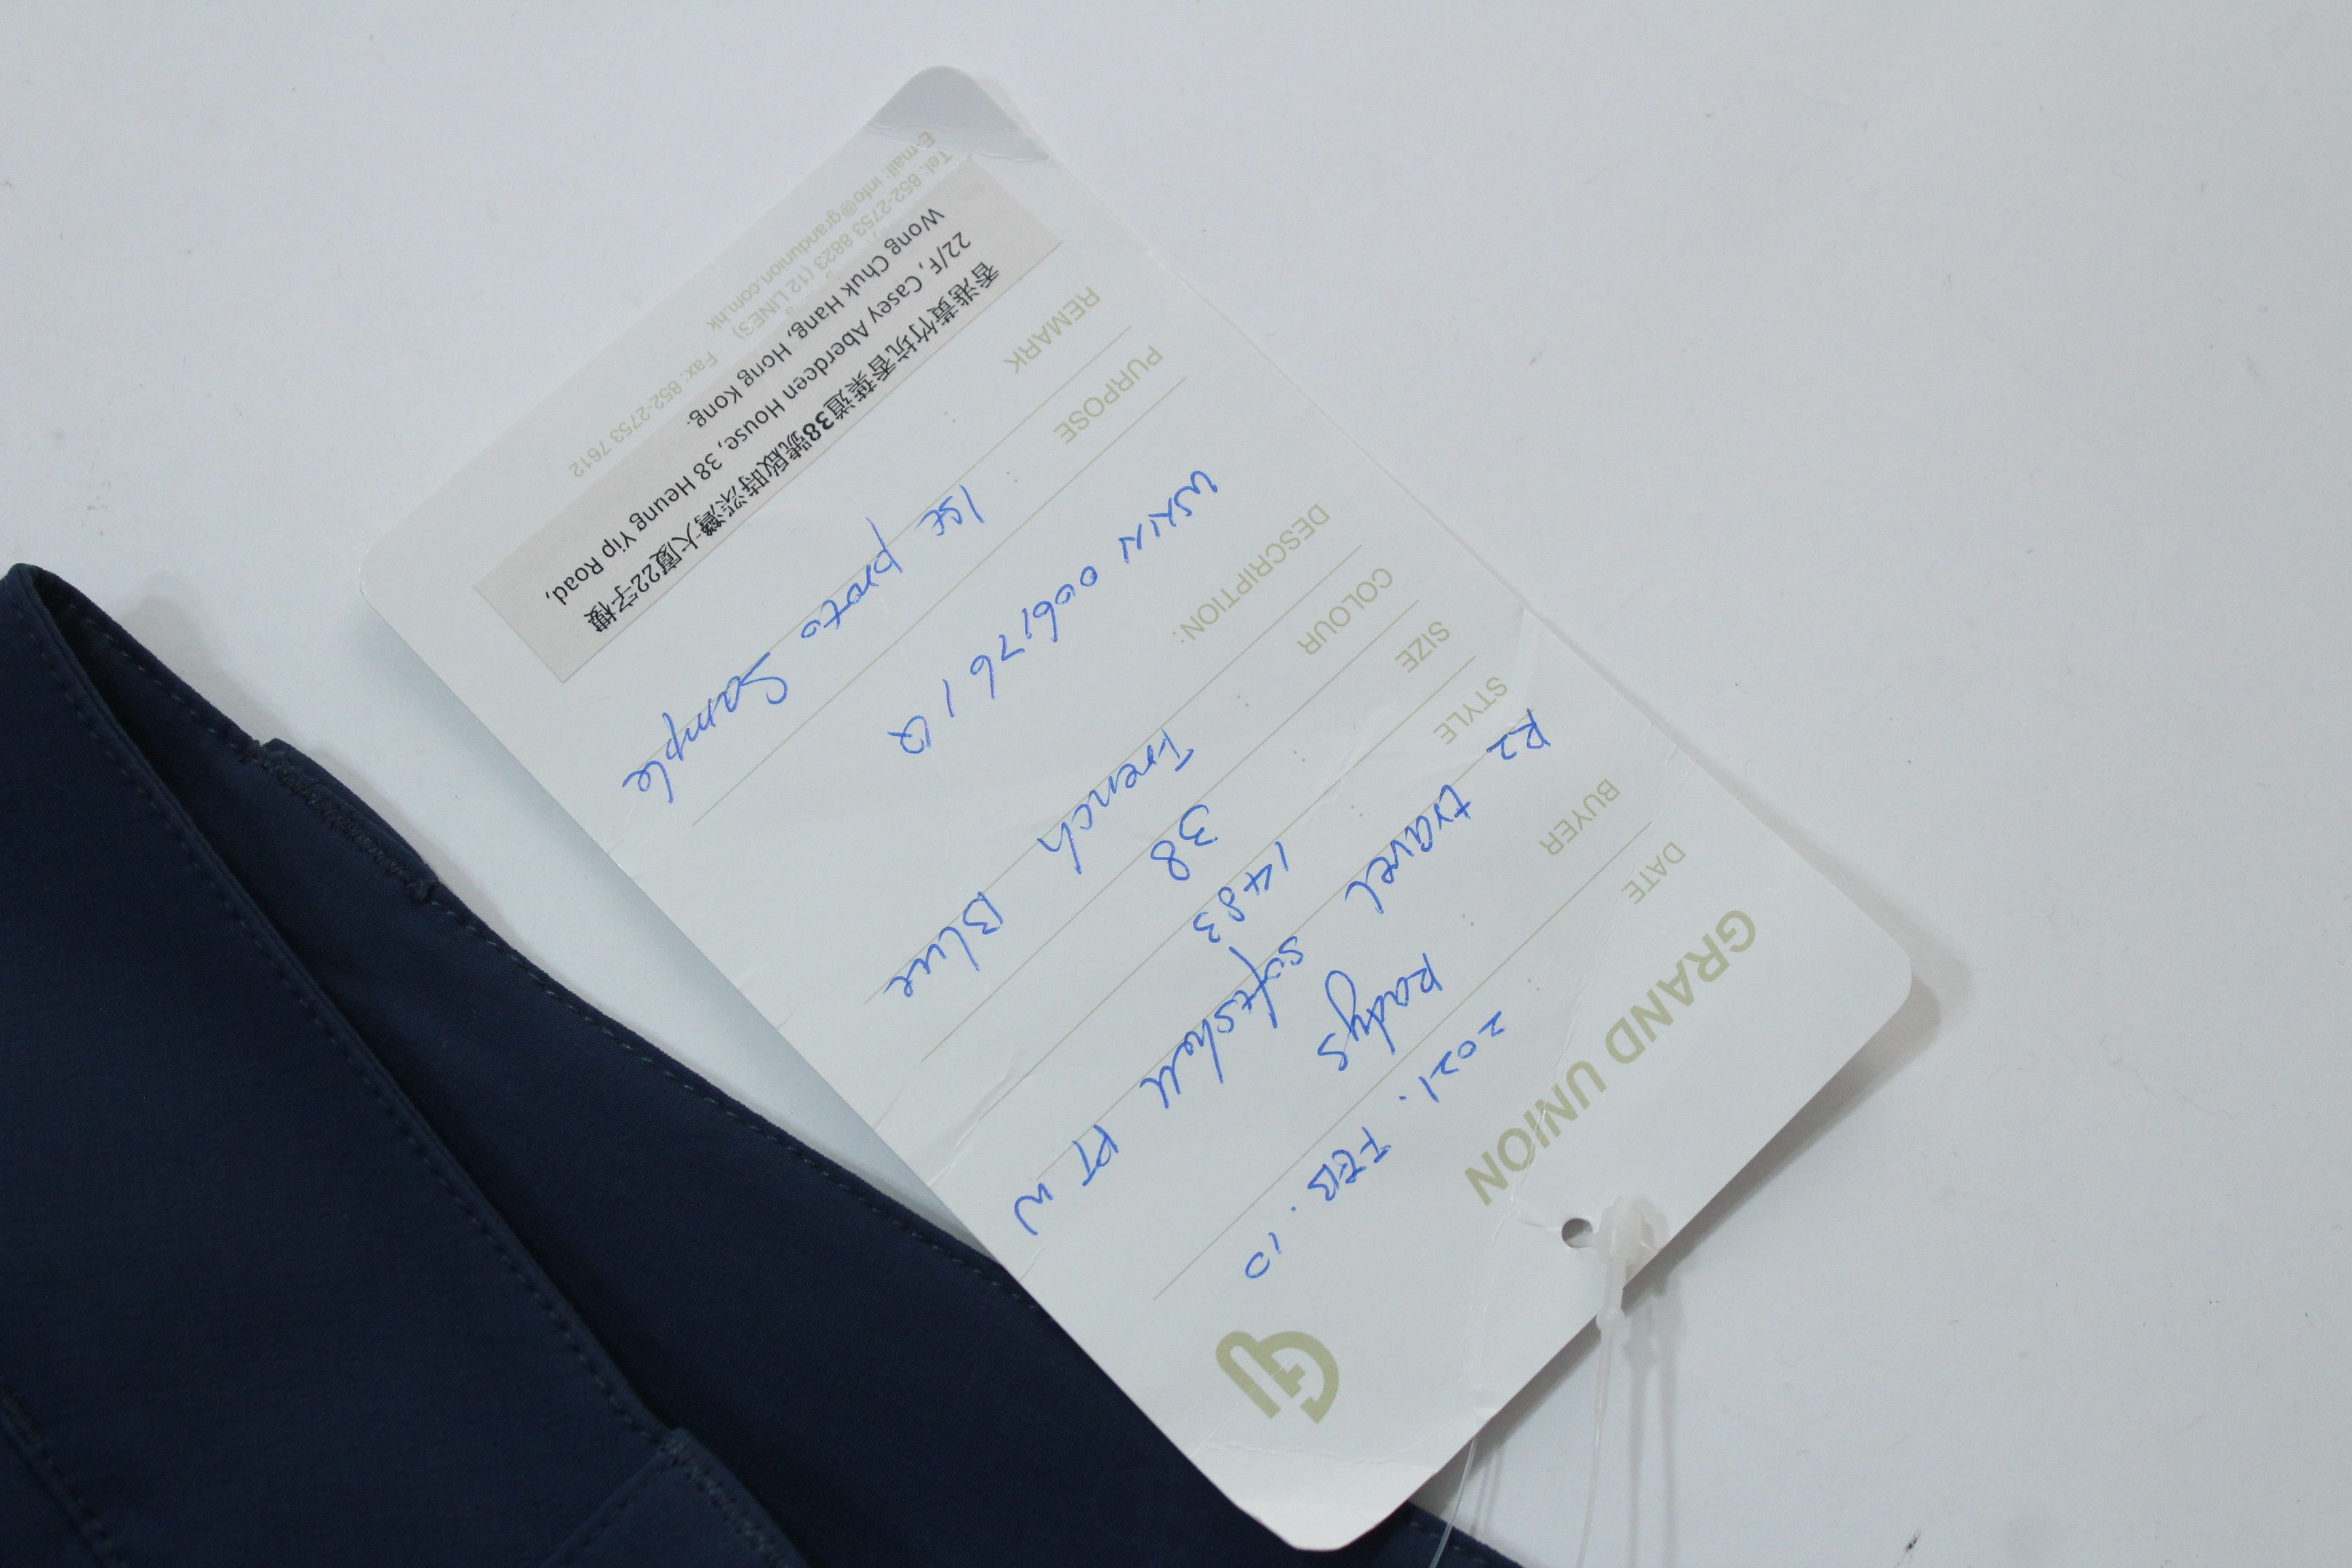 GU
GRAND UNION
DATE 2021. FEB. 10
BUYER Radys
STYLE R2 travel softshell PT W
1483
SIZE 38
COLOUR French Blue
DESCRIPTION:
PURPOSE 1st proto Sample
REMARK
香港黃竹坑香葉道38號啟時深灣大廈22字樓
22/F, Casey Aberdeen House, 38 Heung Yip Road,
Wong Chuk Hang, Hong Kong.
Tel: 852-2753 8823 (12 LINES) Fax: 852-2753 7612
E-mail: info@grandunion.com.hk